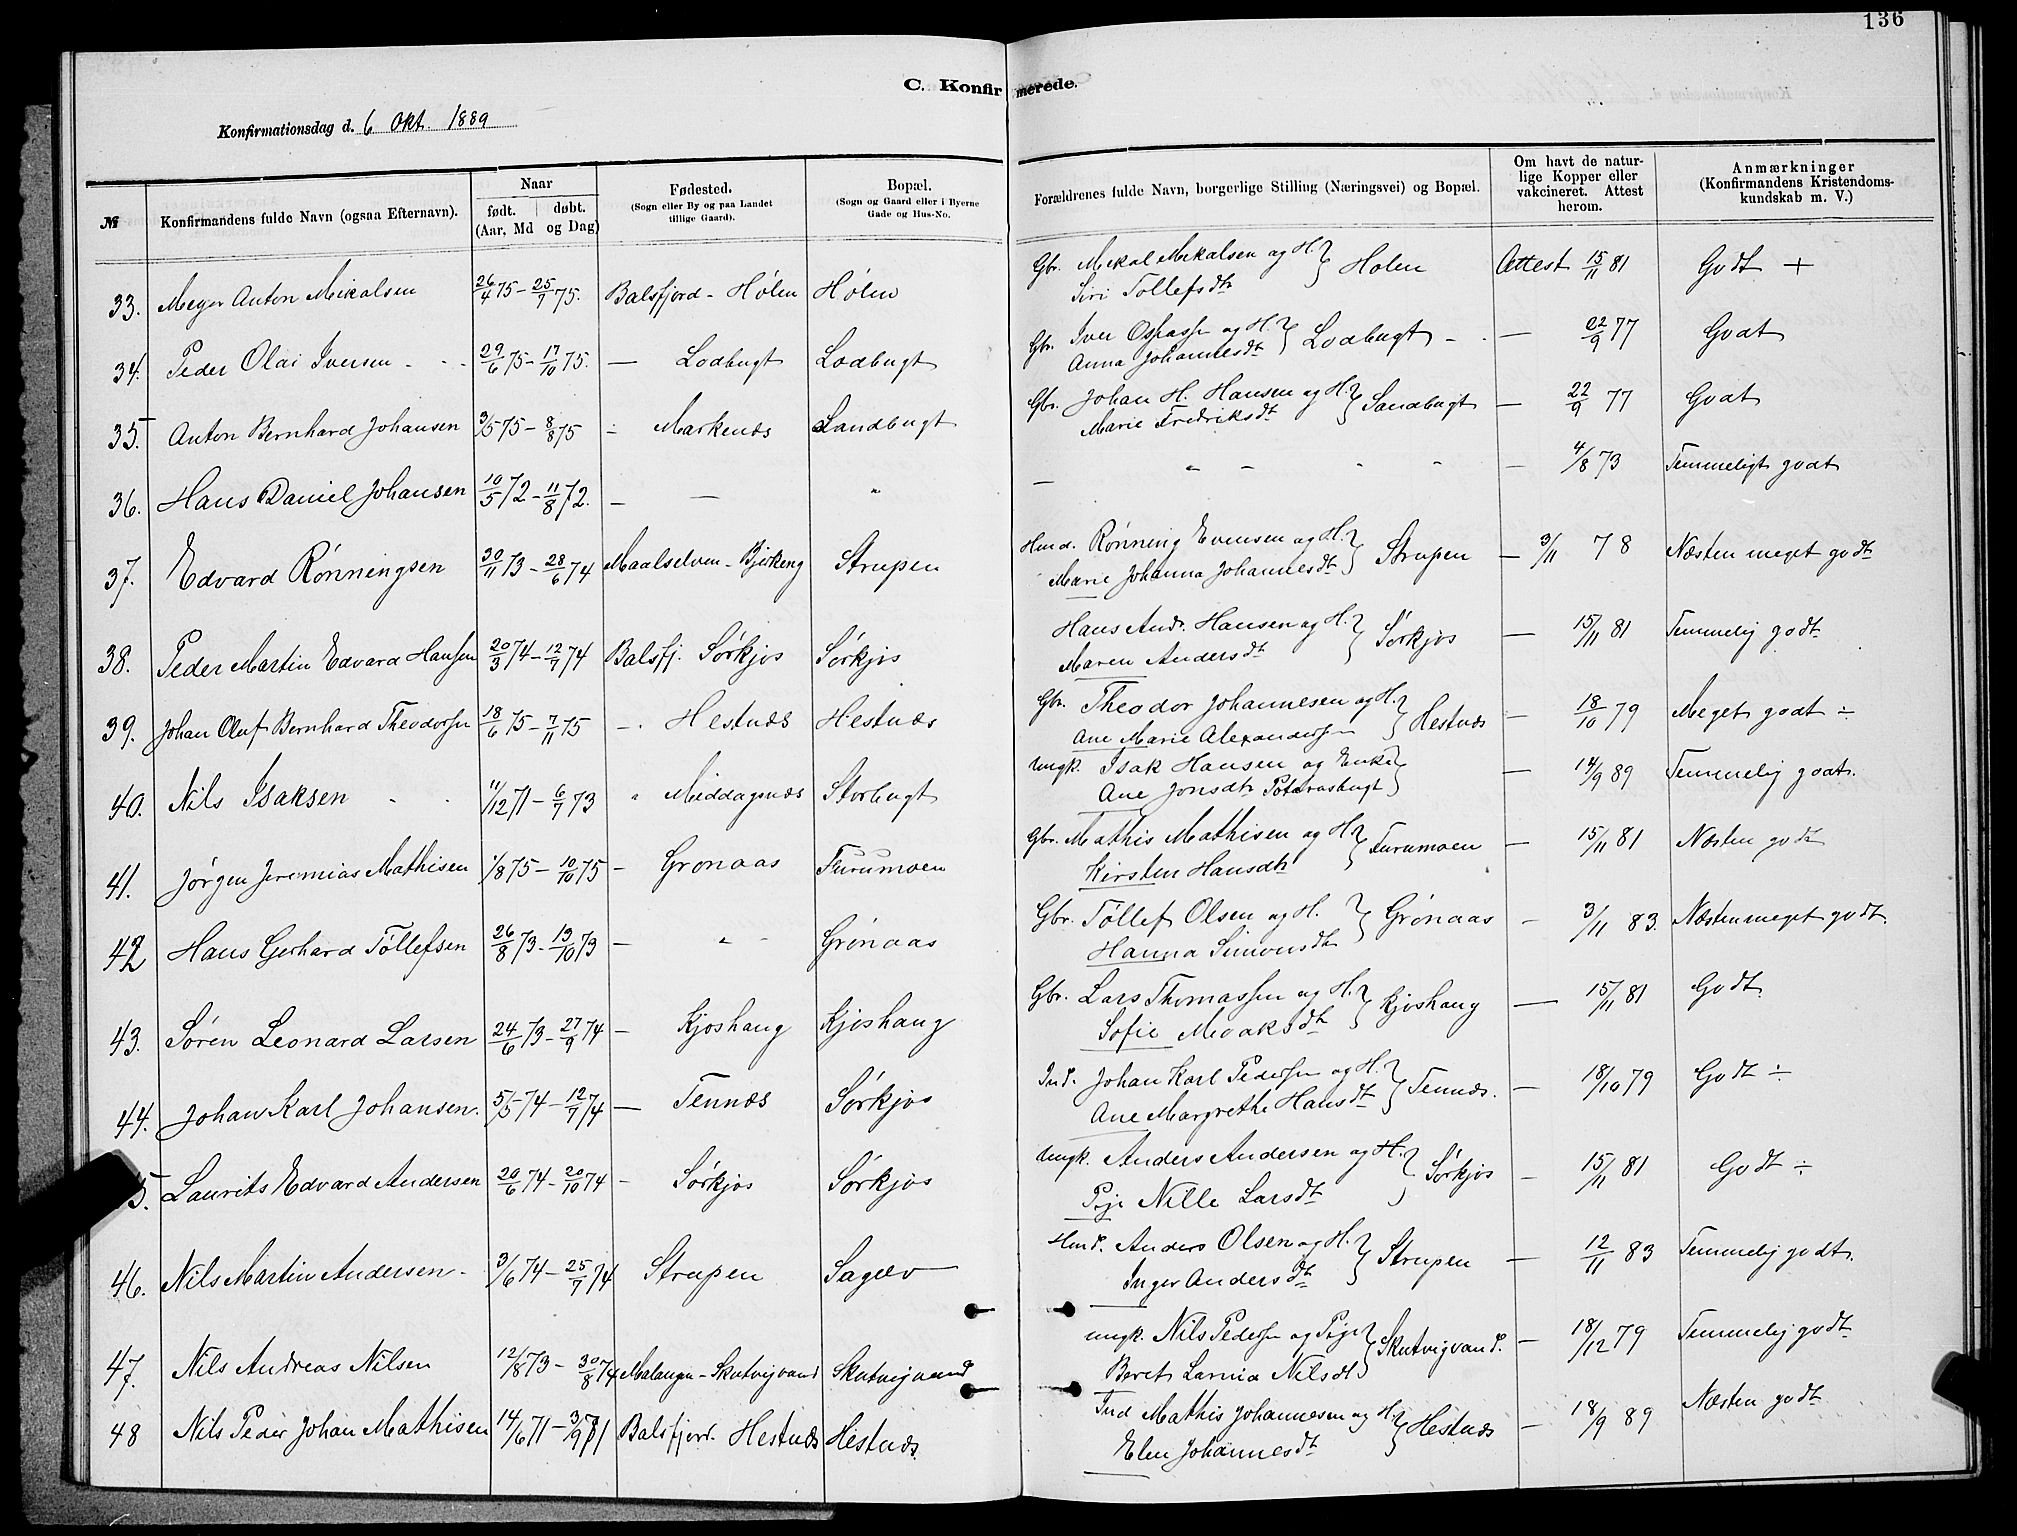 136
C. Konfirmerede.
Konfirmationsdag d. 6 Okt. 1889
№ | Konfirmandens fulde Navn (ogsaa Efternavn). | Naar født. | døbt. (Aar, Md og Dag) | Fødested. (Sogn eller By og paa Landet tillige Gaard). | Bopæl. (Sogn og Gaard eller i Byerne Gade og Hus-No. | Forældrenes fulde Navn, borgerlige Stilling (Næringsvei) og Bopæl. | Om havt de naturlige Kopper eller vakcineret. Attest herom. | Anmærkninger (Konfirmandens Kristendomskundskab m. V.)
33. Meyer Anton Mikalsen | 26/4 75 - 25/7 75. | Balsfjord - Hølen | Hølen | Gbr. Mikal Mikalsen og H. Siri Tollefsdtr } Holen | Attest 15/11 81 | Godt +
34. Peder Olai Iversen | 29/6 75 - 17/10 75. | — Lodbugt | Lodbugt | Gbr. Iver Ospassen og H. Anna Johannesdt } Lodbugt | — 22/9 77 | Godt
35. Anton Bernhard Johansen | 3/5 75 - 8/8 75 | - Markenæs | Sandbugt | Gbr. Johan H. Hansen og H. Marie Fredriksdt } Sandbugt | — 22/9 77 | Godt
36. Hans Daniel Johansen | 10/5 72 - 11/8 72. | — — | " | — " — " " | — 4/8 73 | Temmeligt godt
37. Edvard Rønningsen | 30/11 73 - 28/6 74 | Maalselven - Bjerkeng | Strupen | Hmd. Rønning Evensen og H. Marie Johanna Johannesdt } Strupen | — 3/11 78 | Næsten meget godt
38. Peder Martin Edvard Hansen | 20/3 74 - 12/7 74 | Balsfj. Sørkjos | Sørkjos | Hans Andr. Hansen og H. Maren Andersdt } Sørkjos | — 15/11 81 | Temmelig godt
39. Johan Oluf Bernhard Theodorsen | 18/6 75 - 7/11 75 | -. Hestnæs | Hestnæs | Gbr. Theodor Johannesen og H. Ane Marie Alexandersen } Hestnæs | — 18/10 79 | Meget godt ÷
40. Nils Isaksen | 11/12 71 - 6/7 73 | " Middagsnæs | Storbugt | Ungk. Isak Hansen og Enke Ane Jonsdtr } | — 14/9 89 | Temmelig godt.
41. Jørgen Jeremias Mathisen | 1/8 75 - 10/10 75 | — Grønaas | Furumoen | Gbr. Mathis Mathisen og H. Kirsten Hansdtr } Furumoen | — 15/11 81 | Næsten godt
42 Hans Gerhard Tøllefsen | 26/8 73 - 13/10 73 | — " - | Grønaas | Gbr. Tøllef Olsen og H. Hanna Simonsdt } Grønaas | — 3/11 83. | Næsten meget godt.
43. Søren Leonard Larsen | 24/6 73 - 27/9 74 | — Kjoshaug | Kjoshaug | Gbr. Lars Thomassen og H. Sofie Meoaksdt } Kjoshaug | — 15/11 81 | Godt.
44. Johan Karl Johansen. | 5/5 74 - 12/7 74 | — Tennæs | Sørkjos | Ind. Johan Karl Pedersen og H. Ane Margrethe Hansdt } Tennæs. | — 18/10 79 | Godt ÷
5. Laurits Edvard Andersen | 20/6 74 - 20/10 74 | — Sørkjos | Sørkjos | Ungk. Anders Andersen og H. Pige Nille Larsdt } Sørkjos | — 15/11 81 | Godt ÷
46. Nils Martin Andersen | 3/6 74 - 25/7 74 | Strupen | Sagelv | Hmd. Anders Olsen og H. Inger Andersdt } Strupen | — 12/11 83 | Temmelig godt.
47. Nils Andreas Nilsen | 12/8 73 - 30/8 74 | Malangen - Skutvigvand | Skutvigvand | Ungk. Nils Pedersen og Pige Beret Larnia Nilsdt } Skutvigvand. | — 18/12 79 | Temmelig godt
48 Nils Peder Johan Mathisen | 14/6 71 - 3/9 71 | Balsfjord. Hestnæs | Hestnæs. | Ind Mathis Johannesen og H. Elen Johannesdt } Hestnæs | — 18/9 89 | Næsten godt